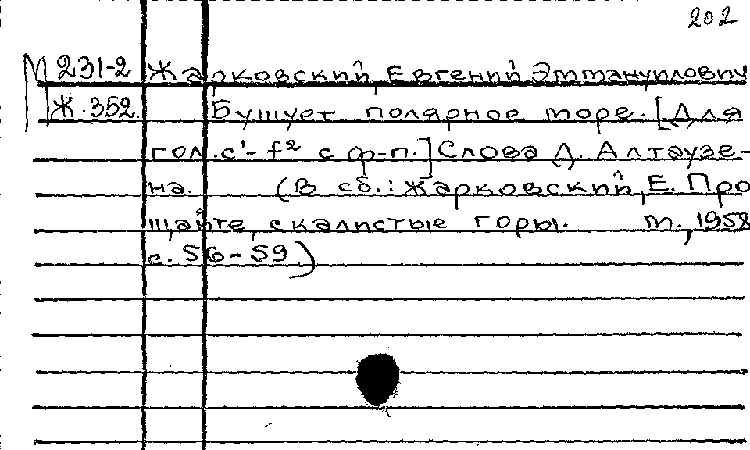 202
М 231-2 Жарковский, Евгений Эммануилович
Ж.352 Бушует полярное море. [Для
гол. c¹-f² с ф-п.] Слова Д. Алтаузе-
на. (В сб.: Жарковский, Е. Про
щайте, скалистые горы. М., 1958
с. 56-59.)